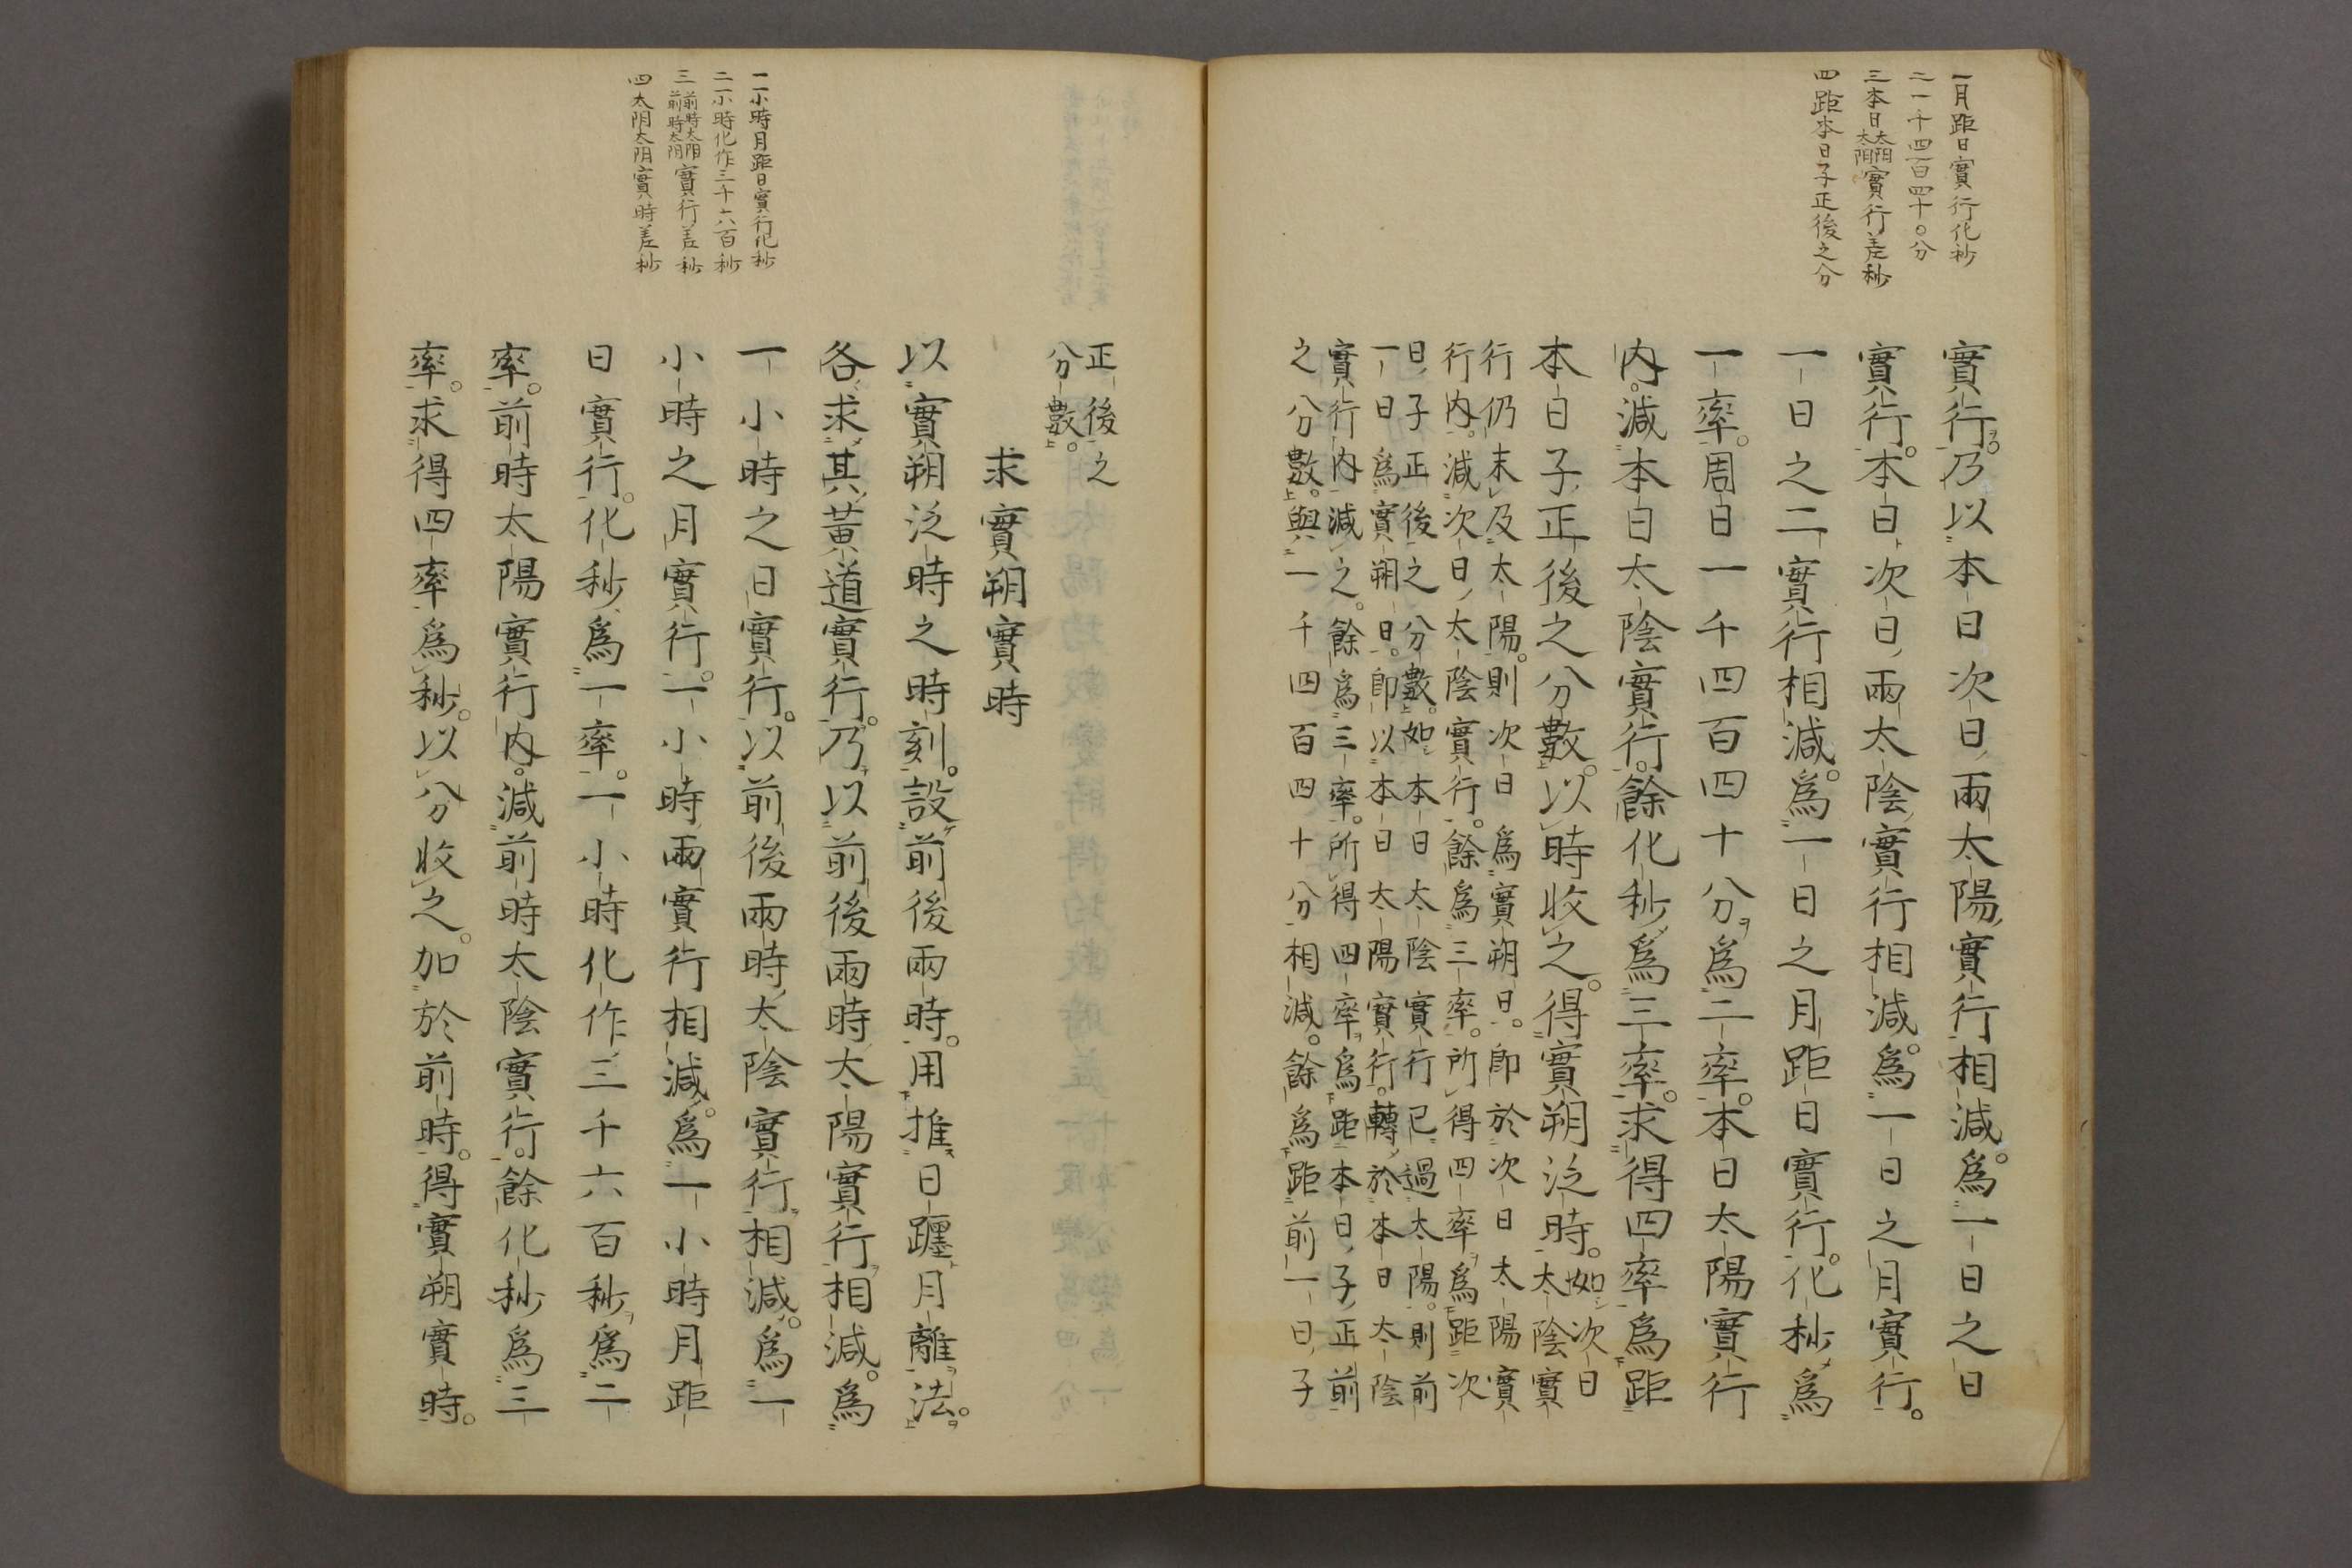 一月距日實行化秒
二一千四百四十〇分
三本日太阳太阴實行差秒
四距本日子正後之分
實行。乃以本日次日兩太陽實行相減。爲一日之日
實行。本日次日兩太陰實行相減。爲一日之月實行。
一日之二實行相減。爲一日之月距日實行。化秒爲
一率。周日一千四百四十分爲二率。本日太陽實行
内。減本日太陰實行。餘化秒爲三率。求得四率爲距
本日子正後之分數。以時收之。得實朔泛時。如次日
太陰實
行仍未及太陽。則次日爲實朔日。即於次日太陽實
行内。減次日太陰實行。餘爲三率。所得四率爲距次
日子正後之分數。如本日太陰實行已過太陽。則前
一日爲實朔日。即以本日太陽實行。轉於本日太陰
實行内減之。餘爲三率。所得四率爲距本日子正前
之分數。與一千四百四十分相減。餘爲距前一日子
一一小時月距日實行化秒
二一小時化作三千六百秒
三前時太阳前時太阴實行差秒
四太阴太阳實時差秒
正後之
分數。
求實朔實時
以實朔泛時之時刻。設前後兩時。用推日躔月離法。
各求其黃道實行。乃以前後兩時太陽實行相減。爲
一小時之日實行。以前後兩時太陰實行相減。爲一
小時之月實行。一小時兩實行相減。爲一小時月距
日實行。化秒爲一率。一小時化作三千六百秒爲二
率。前時太陽實行内。減前時太陰實行。餘化秒爲三
率。求得四率爲秒。以分收之。加於前時。得實朔實時。